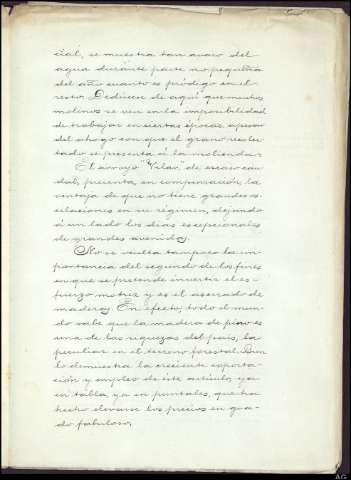 cial, se muestra tan avaro del
agua durante parte no pequeña
del año cuanto es pródigo en el
resto. Dedúcese de aquí que muchos
molinos se ven en la imposibilidad
de trabajar en ciertas épocas, a pesar
del ahogo con que el grano
se presenta á la molienda.
El arroyo "Vilar" de escaso cau-
dal, presenta, en comparación, la
ventaja de que no tiene grandes os-
cilaciones en su régimen, dejando
á un lado los dias escepcionales
de grandes avenidas.
No se oculta tampoco la im-
portancia del segundo de los fines
en que se pretende invertir el es-
fuerzo motriz y es el aserrado de
maderas. En efecto, todo el mun-
do sabe que la madera de pino es
una de las riquezas del pais, la
peculiar en el terreno forestal. Bien
lo demuestra la creciente exporta-
ción y empleo de este artículo, ya
en tabla, ya en puntales, que ha
hecho elevarse los precios en gra-
do fabuloso,